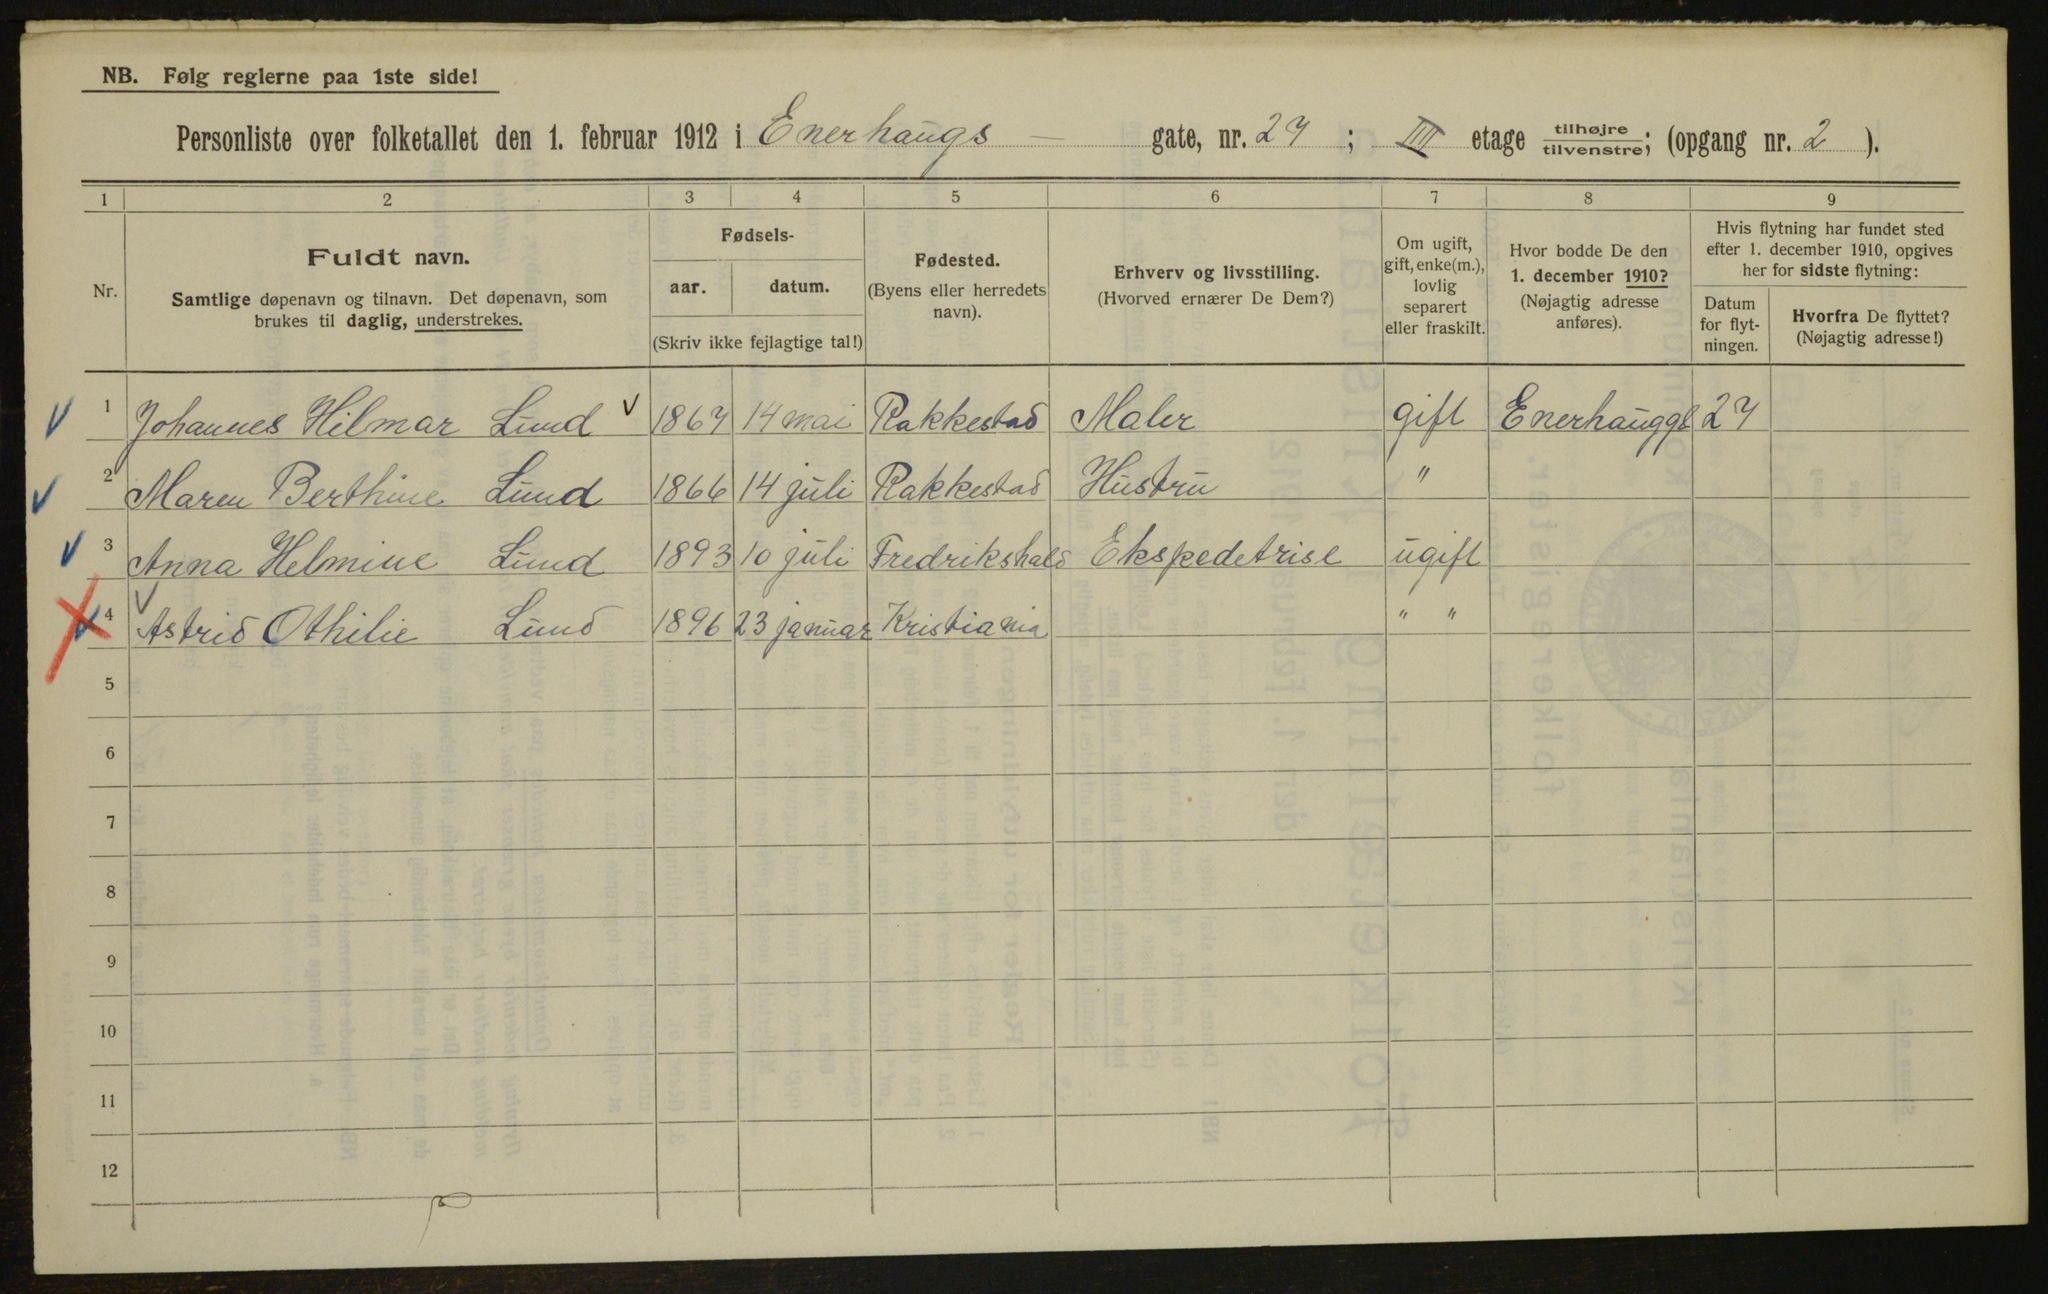 NB. Følg reglerne paa 1ste side!
Personliste over folketallet den 1. februar 1912 i Enerhaugs — gate, nr. 27 ; III etage tilhøjre/tilvenstre; (opgang nr. 2 ).
1 2 3 4 5 6 7 8 9
Nr. Fuldt navn. Samtlige døpenavn og tilnavn. Det døpenavn, som brukes til daglig, understrekes.
Fødsels- aar. datum. (Skriv ikke fejlagtige tal!)
Fødested. (Byens eller herredets navn).
Erhverv og livsstilling. (Hvorved ernærer De Dem?)
Om ugift, gift, enke(m.), lovlig separert eller fraskilt.
Hvor bodde De den 1. december 1910? (Nøjagtig adresse anføres).
Hvis flytning har fundet sted efter 1. december 1910, opgives her for sidste flytning:
Datum for flyt-ningen. Hvorfra De flyttet? (Nøjagtig adresse!)
1 Johannes Hilmar Lund 1867 14 mai Rakkestad Maler gift Enerhauggt 27
2 Maren Berthine Lund 1866 14 juli Rakkestad Hustru "
3 Anna Helmine Lund 1893 10 juli Fredrikshald Ekspedetrise ugift
4 Astrid Othilie Lund 1896 23 januar Kristiania " "
5
6
7
8
9
10
11
12